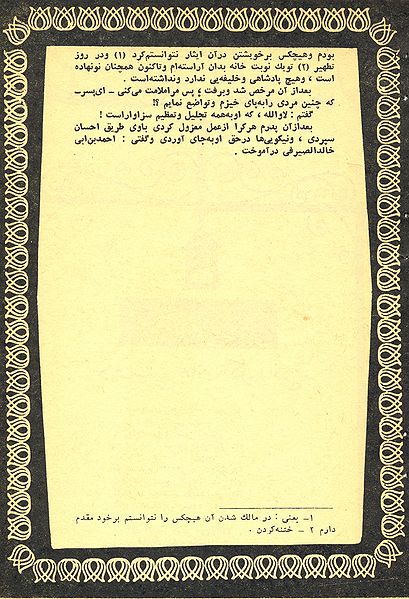 بودم وهیچکس برخویشتن درآن ایثار نتوانستم‌کرد (۱) ودر روز
تطهیر (۲) تویك نوبت خانه بدان آراسته‌ام وتاکنون همچنان نونهاده
است ، وهیچ پادشاهی وخلیفه‌یی ندارد ونداشته‌است .
بعداز آن مرخص شد وبرفت ، پس مراملامت می‌کنی ـ ای‌پسرـ
که چنین مردی رابه‌پای خیزم وتواضع نمایم ؟!
گفتم : لاوالله ، که اوبه‌همه تجلیل وتعظیم سزاواراست !
بعدازآن پدرم هرکرا ازعمل معزول کردی باوی طریق احسان
سپردی ، ونیکویی‌ها درحق اوبه‌جای آوردی وگفتی : احمدبن‌ابی
خالدالصیرفی درآموخت .
۱ـ یعنی : در مالك شدن آن هیچکس را نتوانستم برخود مقدم
دارم ۲ ـ ختنه‌کردن .